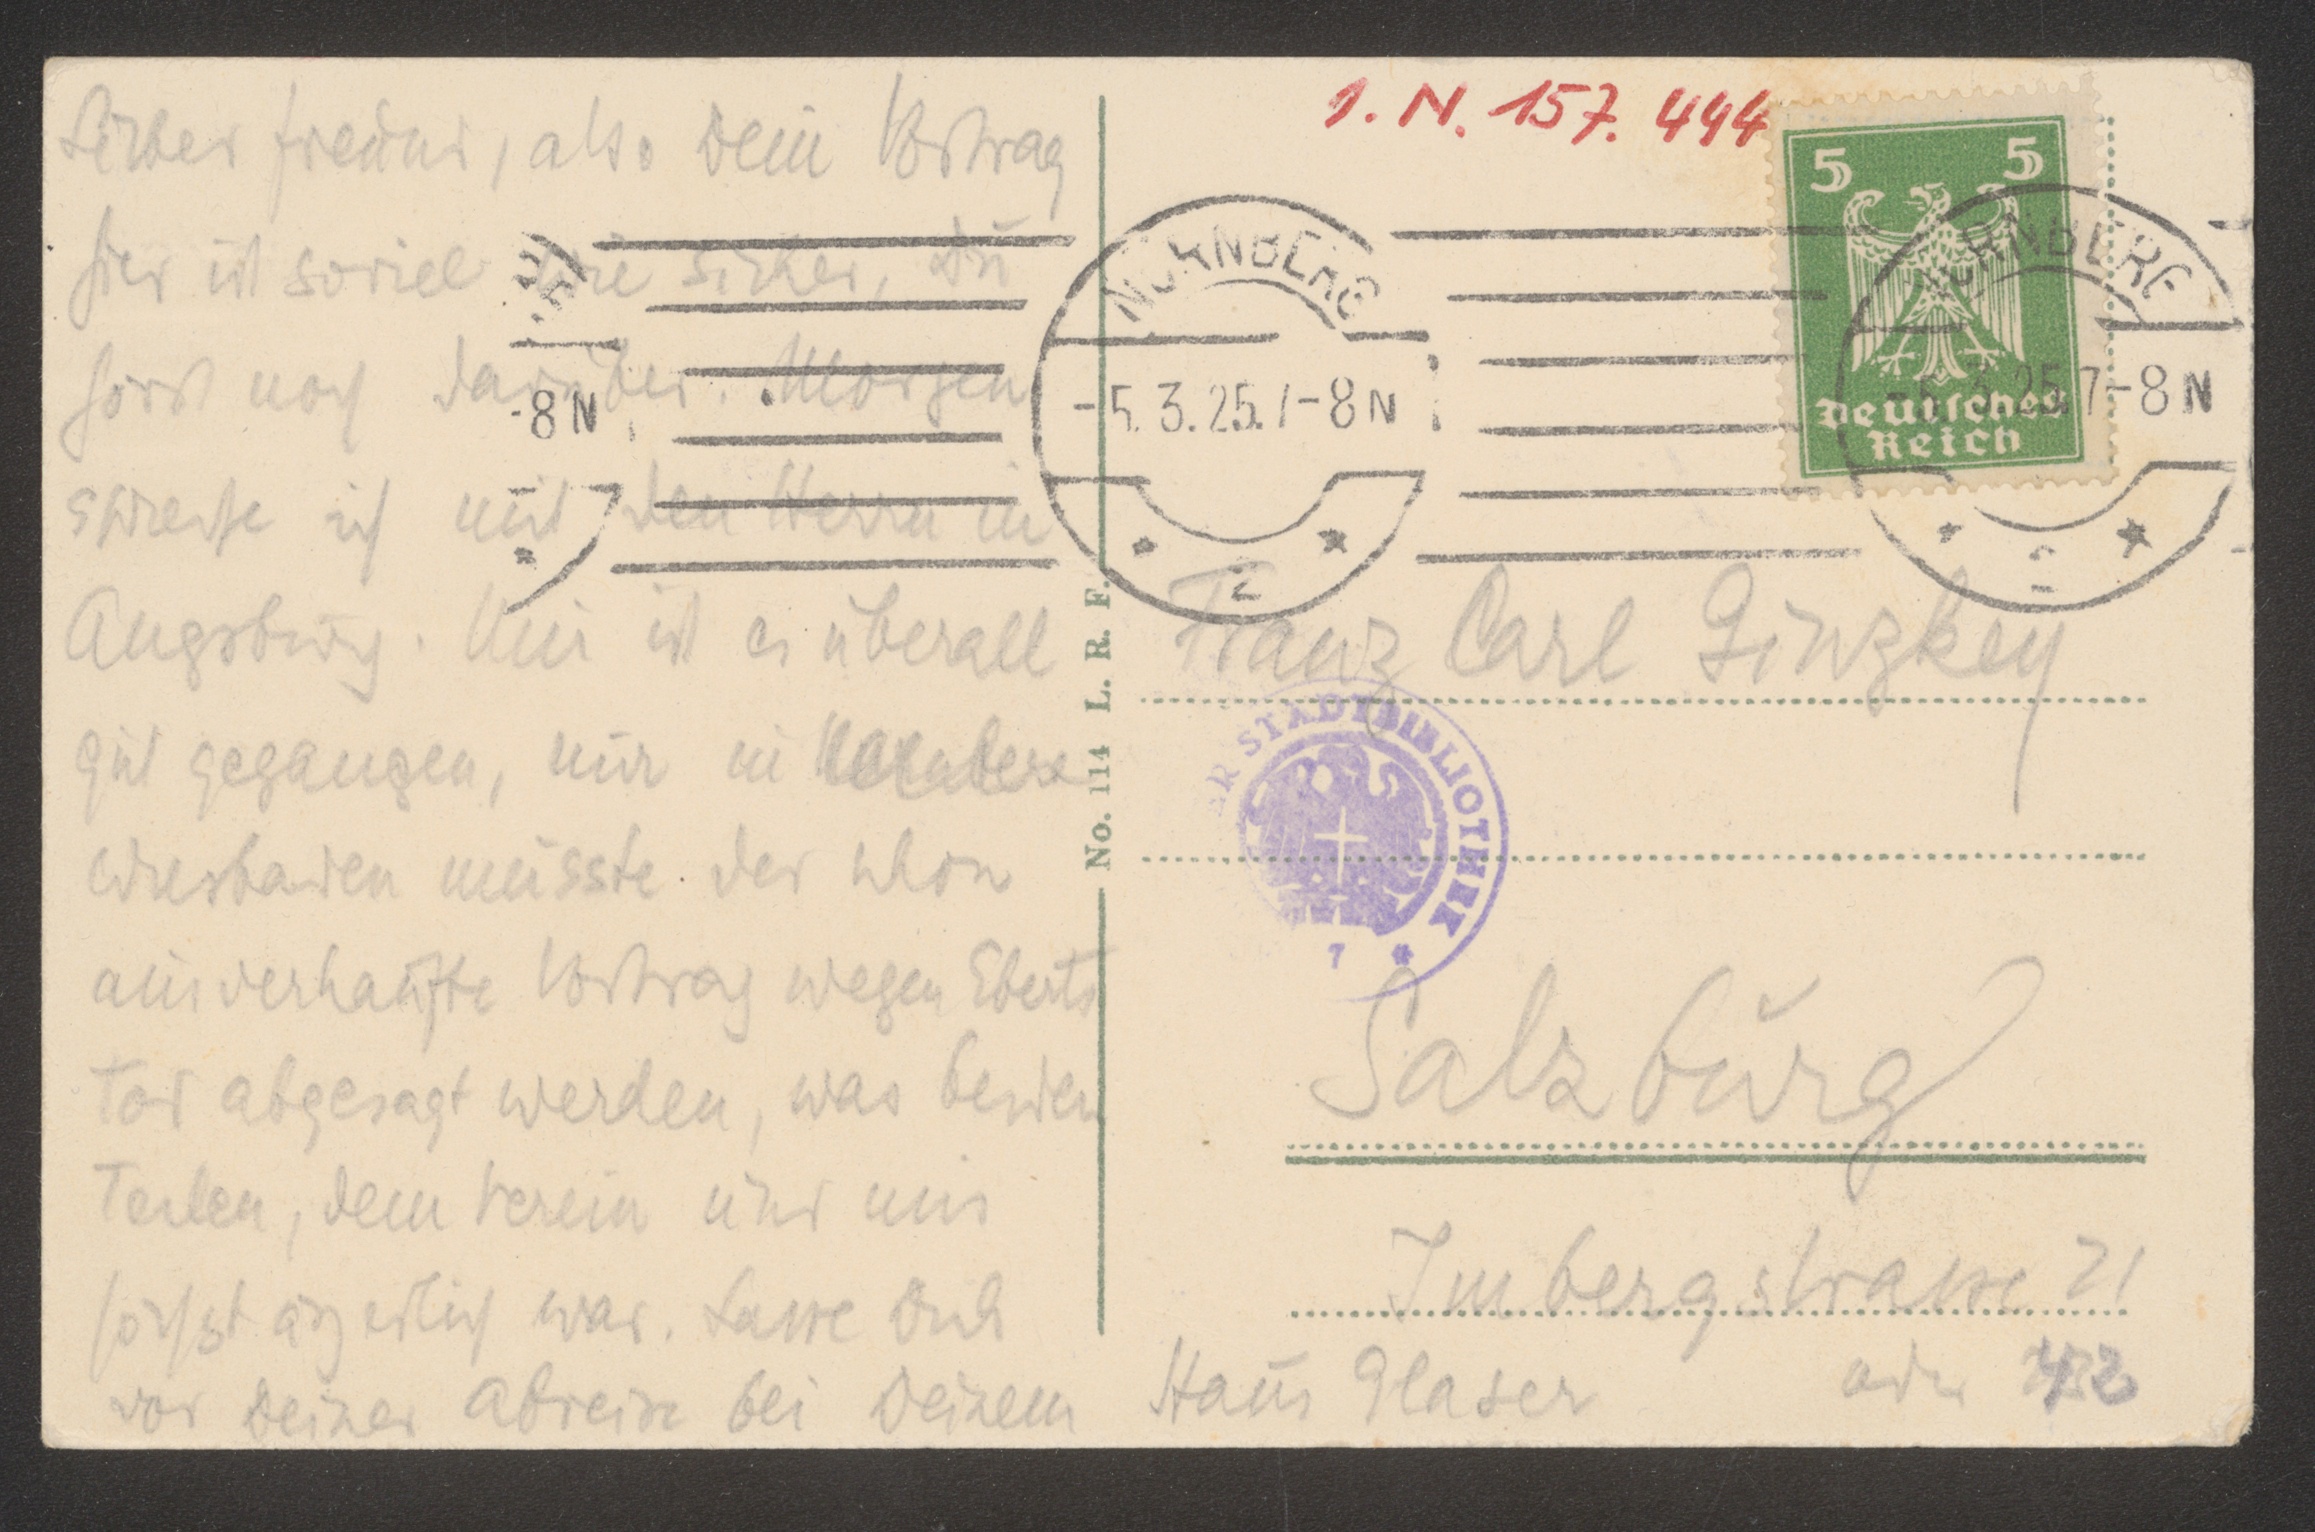 Lieber Freund, also Dein Vortrag
hier ist soviel wie sicher, Du
hörst noch darüber. Morgen
spreche ich mit den Herrn in
Augsburg. Mir ist es überall
gut gegangen, nur in
Wiesbaden müsste der schon
ausverkaufte Vortrag wegen Eberts
Tod abgesagt werden, was beiden
Teilen, dem Verein und mir
höchst ärgerlich war. Lasse Dich
vor Deiner Abreise bei Deinem
1. N. 157. 494
5 5
Deutsches
Reich
NÜRNBERG
-5.3.25.7-8N
2
NÜRNBERG
-5.3.25.7-8N
2
-8N
No. 114 L. R. F.
Franz Carl Ginzkey
ER STADTBIBLIOTHEK
7 *
Salzburg
Imbergstrasse 21
Haus Glaser oder